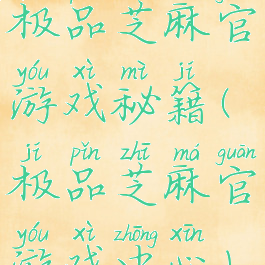 极品芝麻官
yóu xì mì jí
游戏秘籍(
jí pǐn zhī má guān
极品芝麻官
yóu xì zhōng xīn
游戏中心)